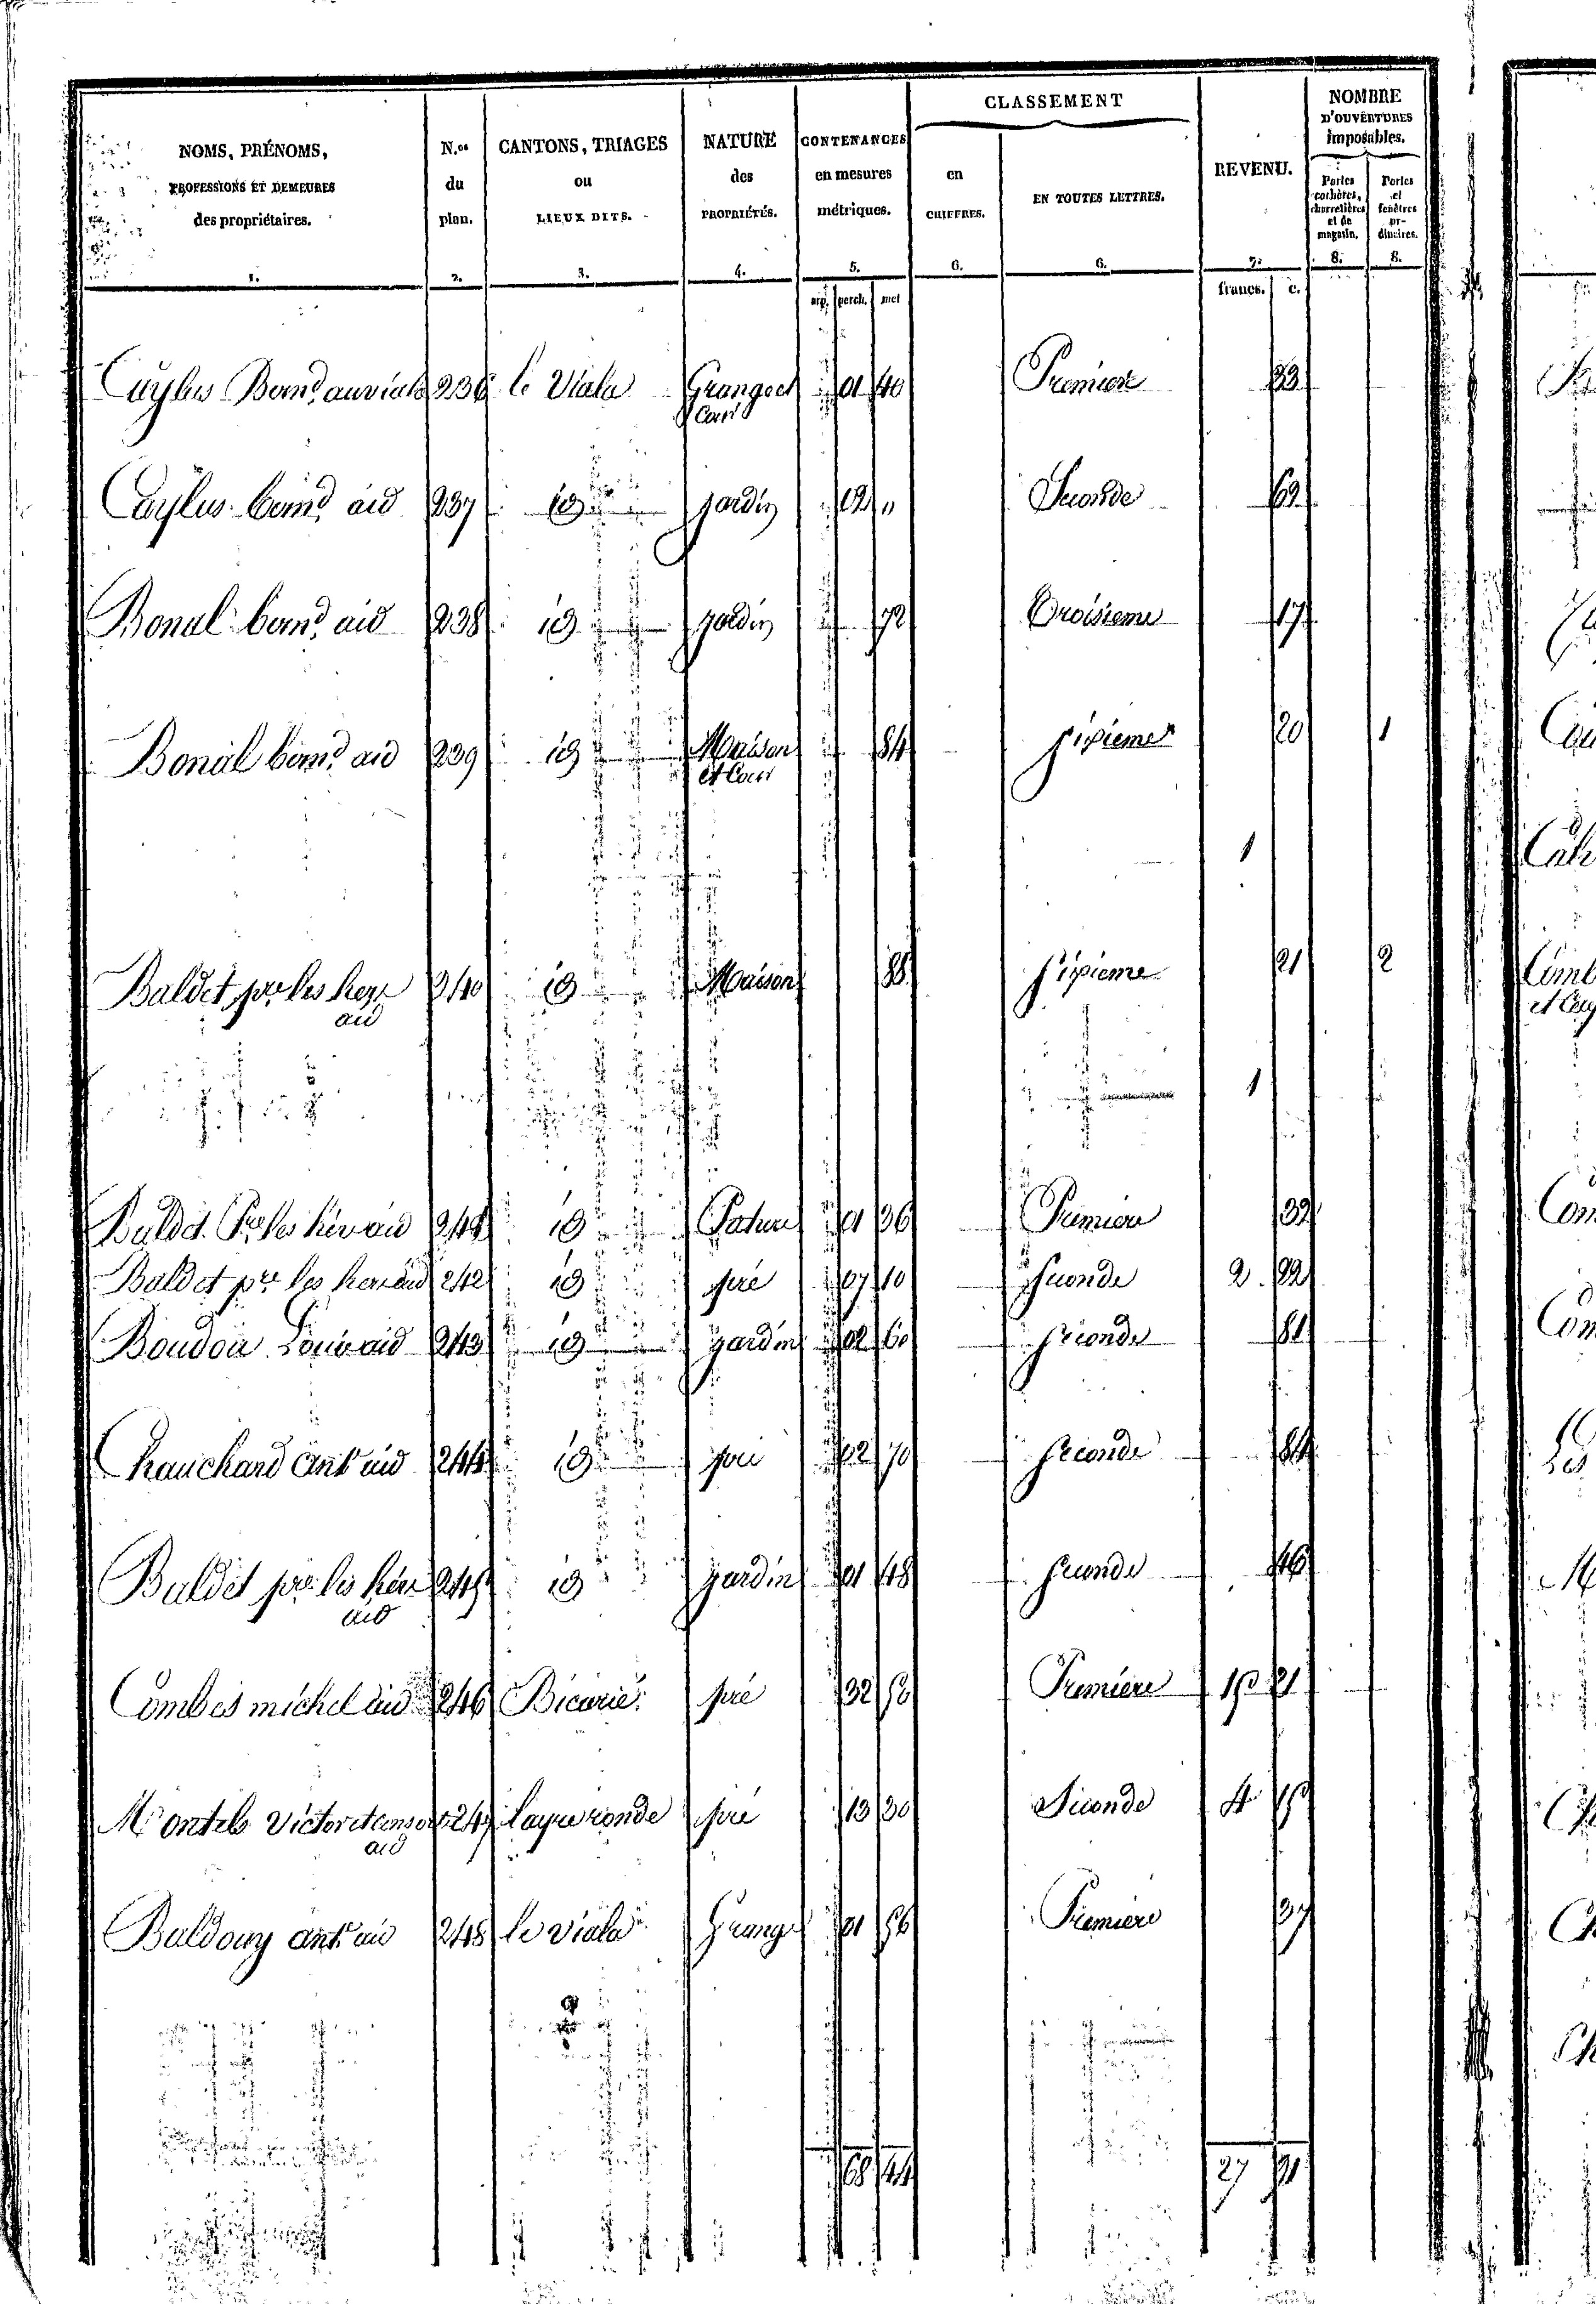 NOMS, PRÉNOMS,
PROFESSIONS ET DEMEURES
des propriétaires.
1.
N.os
du
plan.
2.
CANTONS, TRIAGES
ou
LIEUX DITS.
3.
NATURE
des
PROPRIÉTÉS.
4.
CONTENANCES
en mesures
métriques.
5.
arp. perch. met
CLASSEMENT
en
CHIFFRES.
6.
EN TOUTES LETTRES.
6.
REVENU.
7.
francs. c.
NOMBRE
D'OUVERTURES
imposables.
Portes
cochères,
charretières
et de
magasin.
8.
Portes
et
fenêtres
or-
dinaires.
8.
Caylus Bernd. au viala 236 le Viala Grange et 01 40 Premiere 33
Cour
Caylus bernd. aid 237 id jardin 02 " Seconde 62
Bonal bernd. aid 238 id jardin 72 Troisieme 17
Bonal bernd. aid 239 id Maison 84 sixieme 20 1
et Cour
1
Baldet pre les hers 240 id Maison 88 sixieme 21 2
aid
1
Baldet Pre les her aid 241 id Pature 01 36 Premiere 32
Baldet pre les her aid 242 id pré 07 10 seconde 2 22
Boudou Louis aid 243 id jardin 02 60 seconde 81
Chauchard Ant aid 244 id pré 02 70 seconde 84
Baldet pre les her 245 id jardin 01 48 seconde 46
aid
Combes michel aid 246 pré 32 50 Premiere 15 21
Montels Victor et consort 247 pré 13 30 Seconde 4 15
aid
Baldouy ant. aid 248 le viala Grange 01 56 Premiere 37
68 44 27 91